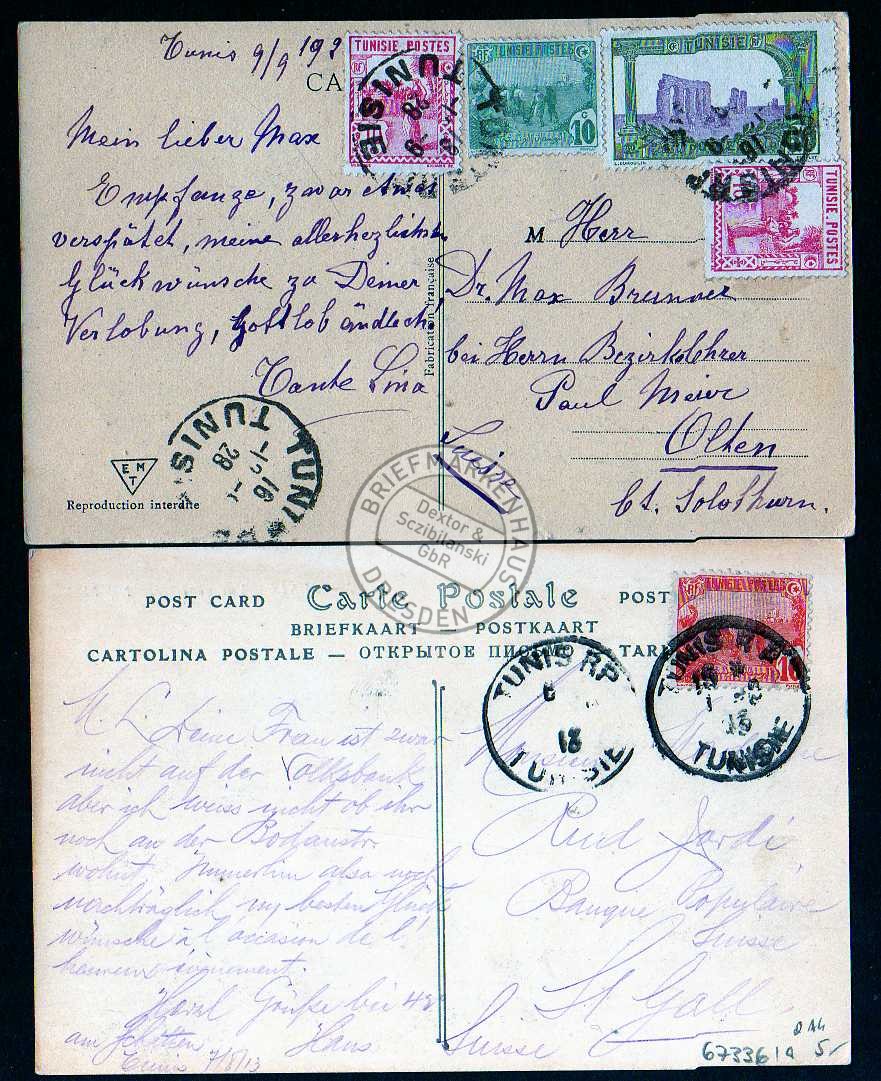 Tunis 9/9 192
CA
TUNISIE POSTES
RF TUNISIE POSTES
10 c
TUNISIE
TUNISIE POSTES
10
TUNIS
28
TUNIS
Mein lieber Max
Empfange, zwar etwas
verspätet, meine allerherzlichsten
Glückwünsche zu Deiner
Verlobung, Gottlob ändlech,
Tante Lina
M Herr
Dr. Max Brunner
bei Herrn Bezirkslehrer
Paul Meier
Olten
Ct. Solothurn.
Suisse
Fabrication française
TUNIS TUNIS
16
28
EMT
Reproduction interdite
BRIEFMARKENHAUS DRESDEN
Dextor &
Sczibilanski
GbR
POST CARD Carte Postale POST
BRIEFKAART — POSTKAART
CARTOLINA POSTALE — ОТКРЫТОЕ ПИСЬМО TARJ
RF TUNISIE POSTES
10
TUNIS RP
13
TUNISIE
TUNIS RP
13
TUNISIE
M. L. Deine Frau ist zwar
nicht auf der Volksbank
aber ich weiss nicht ob ihr
noch an der Bodanstr.
wohnt. Immerhin also noch
nachträglich my besten Glück-
wünsche à l'occasion de l'
heureux événement.
Herzl Grüße bei 42°
am Schatten Hans
Tunis 7/8/13
Monsieur
Rud Jordi
Banque Populaire
Suisse
St Gall
Suisse
673361a 5,-